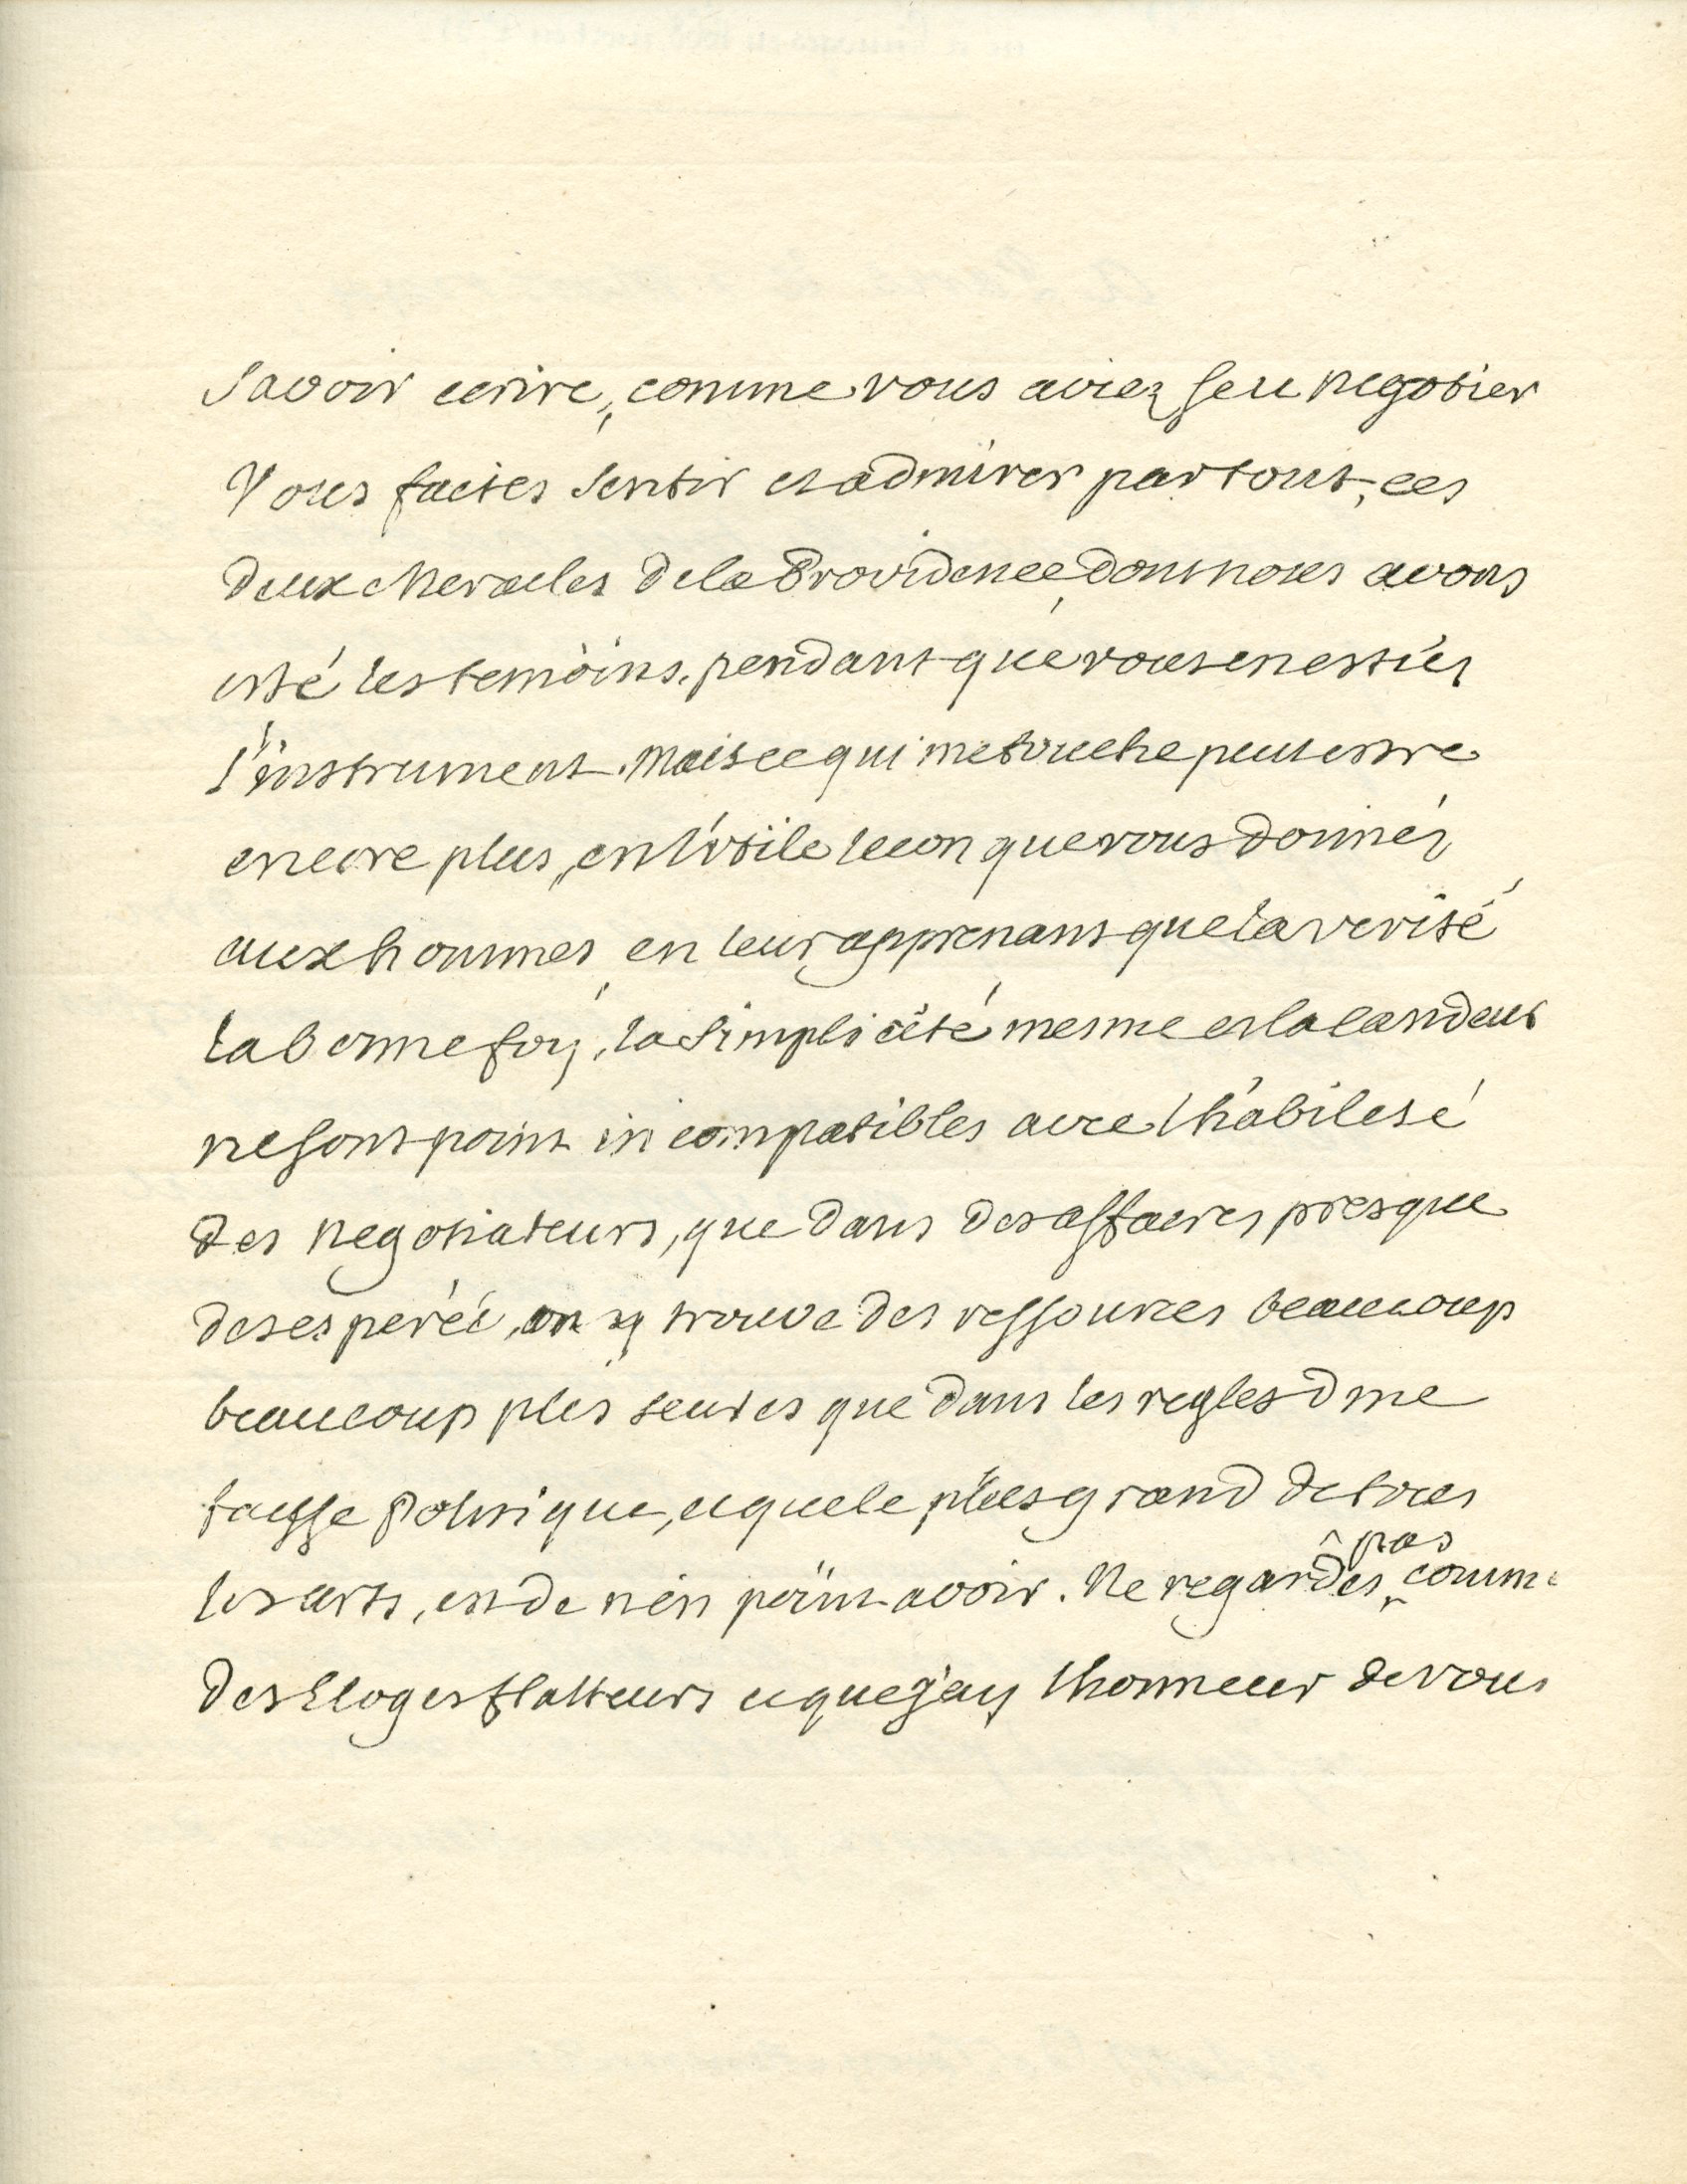 Savoir ecrire, comme vous aviez sceu negotier
Vous faites sentir et admirer par tout, ces
deux Meracles de la Providence, dont nous avons
esté les temoins, pendant que vous en estiez
l'instrument. Mais ce qui me touche peut estre
encore plus, est l'utile lecon que vous donnéz
aux hommes, en leur apprenant que la verité
la bonne foy, la simplicité mesme et la candeur
ne sont point incompatibles avec l'habileté
des negotiateurs, que dans des affaires presque
desesperéé, on y trouve des ressources beaucoup
beaucoup plus seures que dans les regles d'une
fausse Politique, et que le plus grand de tous
les arts, est de n'en point avoir. Ne regardés pas comme
des Eloges flatteurs ce que j'ay l'honneur de vous